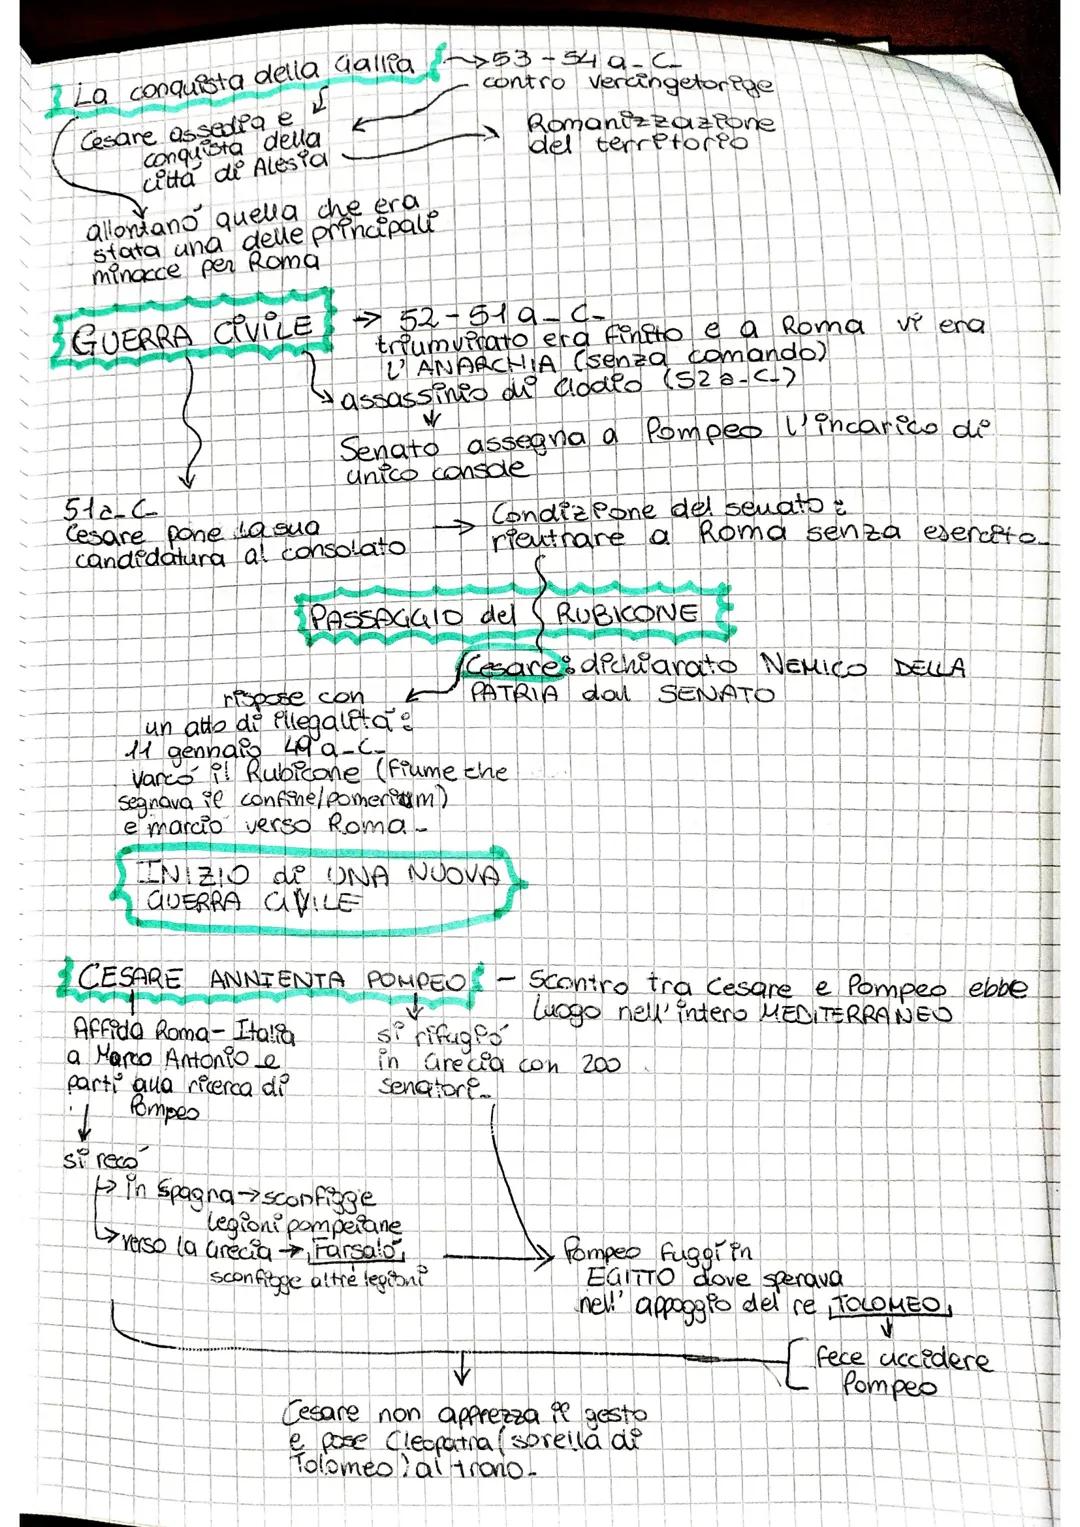 La conquista della Gallia → 53-54 a.C.
contro vercingetorige
Cesare assedia e
conquista della
città di Alesia
Romanizzazione
del territorio
allontanò quella che era
stata una delle principali
minacce per Roma
GUERRA CIVILE → 52-51 a.C.
triumvirato era finito e a Roma vi era
L'ANARCHIA (senza comando)
assassinio di Clodio (52 a.C.)
Senato assegna a Pompeo l'incarico di
unico console
51 a.C.
Cesare pone la sua
candidatura al consolato
→ Condizione del senato:
rientrare a Roma senza esercito.
PASSAGGIO del RUBICONE
Cesare: dichiarato NEMICO DELLA
PATRIA dal SENATO
rispose con
un atto di illegalità:
11 gennaio 49 a.C.
varcò il Rubicone (fiume che
segnava il confine/pomerium)
e marciò verso Roma.
INIZIO di UNA NUOVA
GUERRA CIVILE
CESARE ANNIENTA POMPEO - Scontro tra Cesare e Pompeo ebbe
luogo nell'intero MEDITERRANEO
Affida Roma-Italia
a Marco Antonio e
partì alla ricerca di
Pompeo
si rifugiò
in Grecia con 200
senatori.
si recò
→ in Spagna → sconfigge
legioni pompeiane
→ verso la Grecia → Farsalo,
sconfigge altre legioni
Pompeo fuggì in
EGITTO dove sperava
nell'appoggio del re TOLOMEO
fece uccidere
Pompeo
Cesare non apprezza il gesto
e pose Cleopatra (sorella di
Tolomeo) al trono.